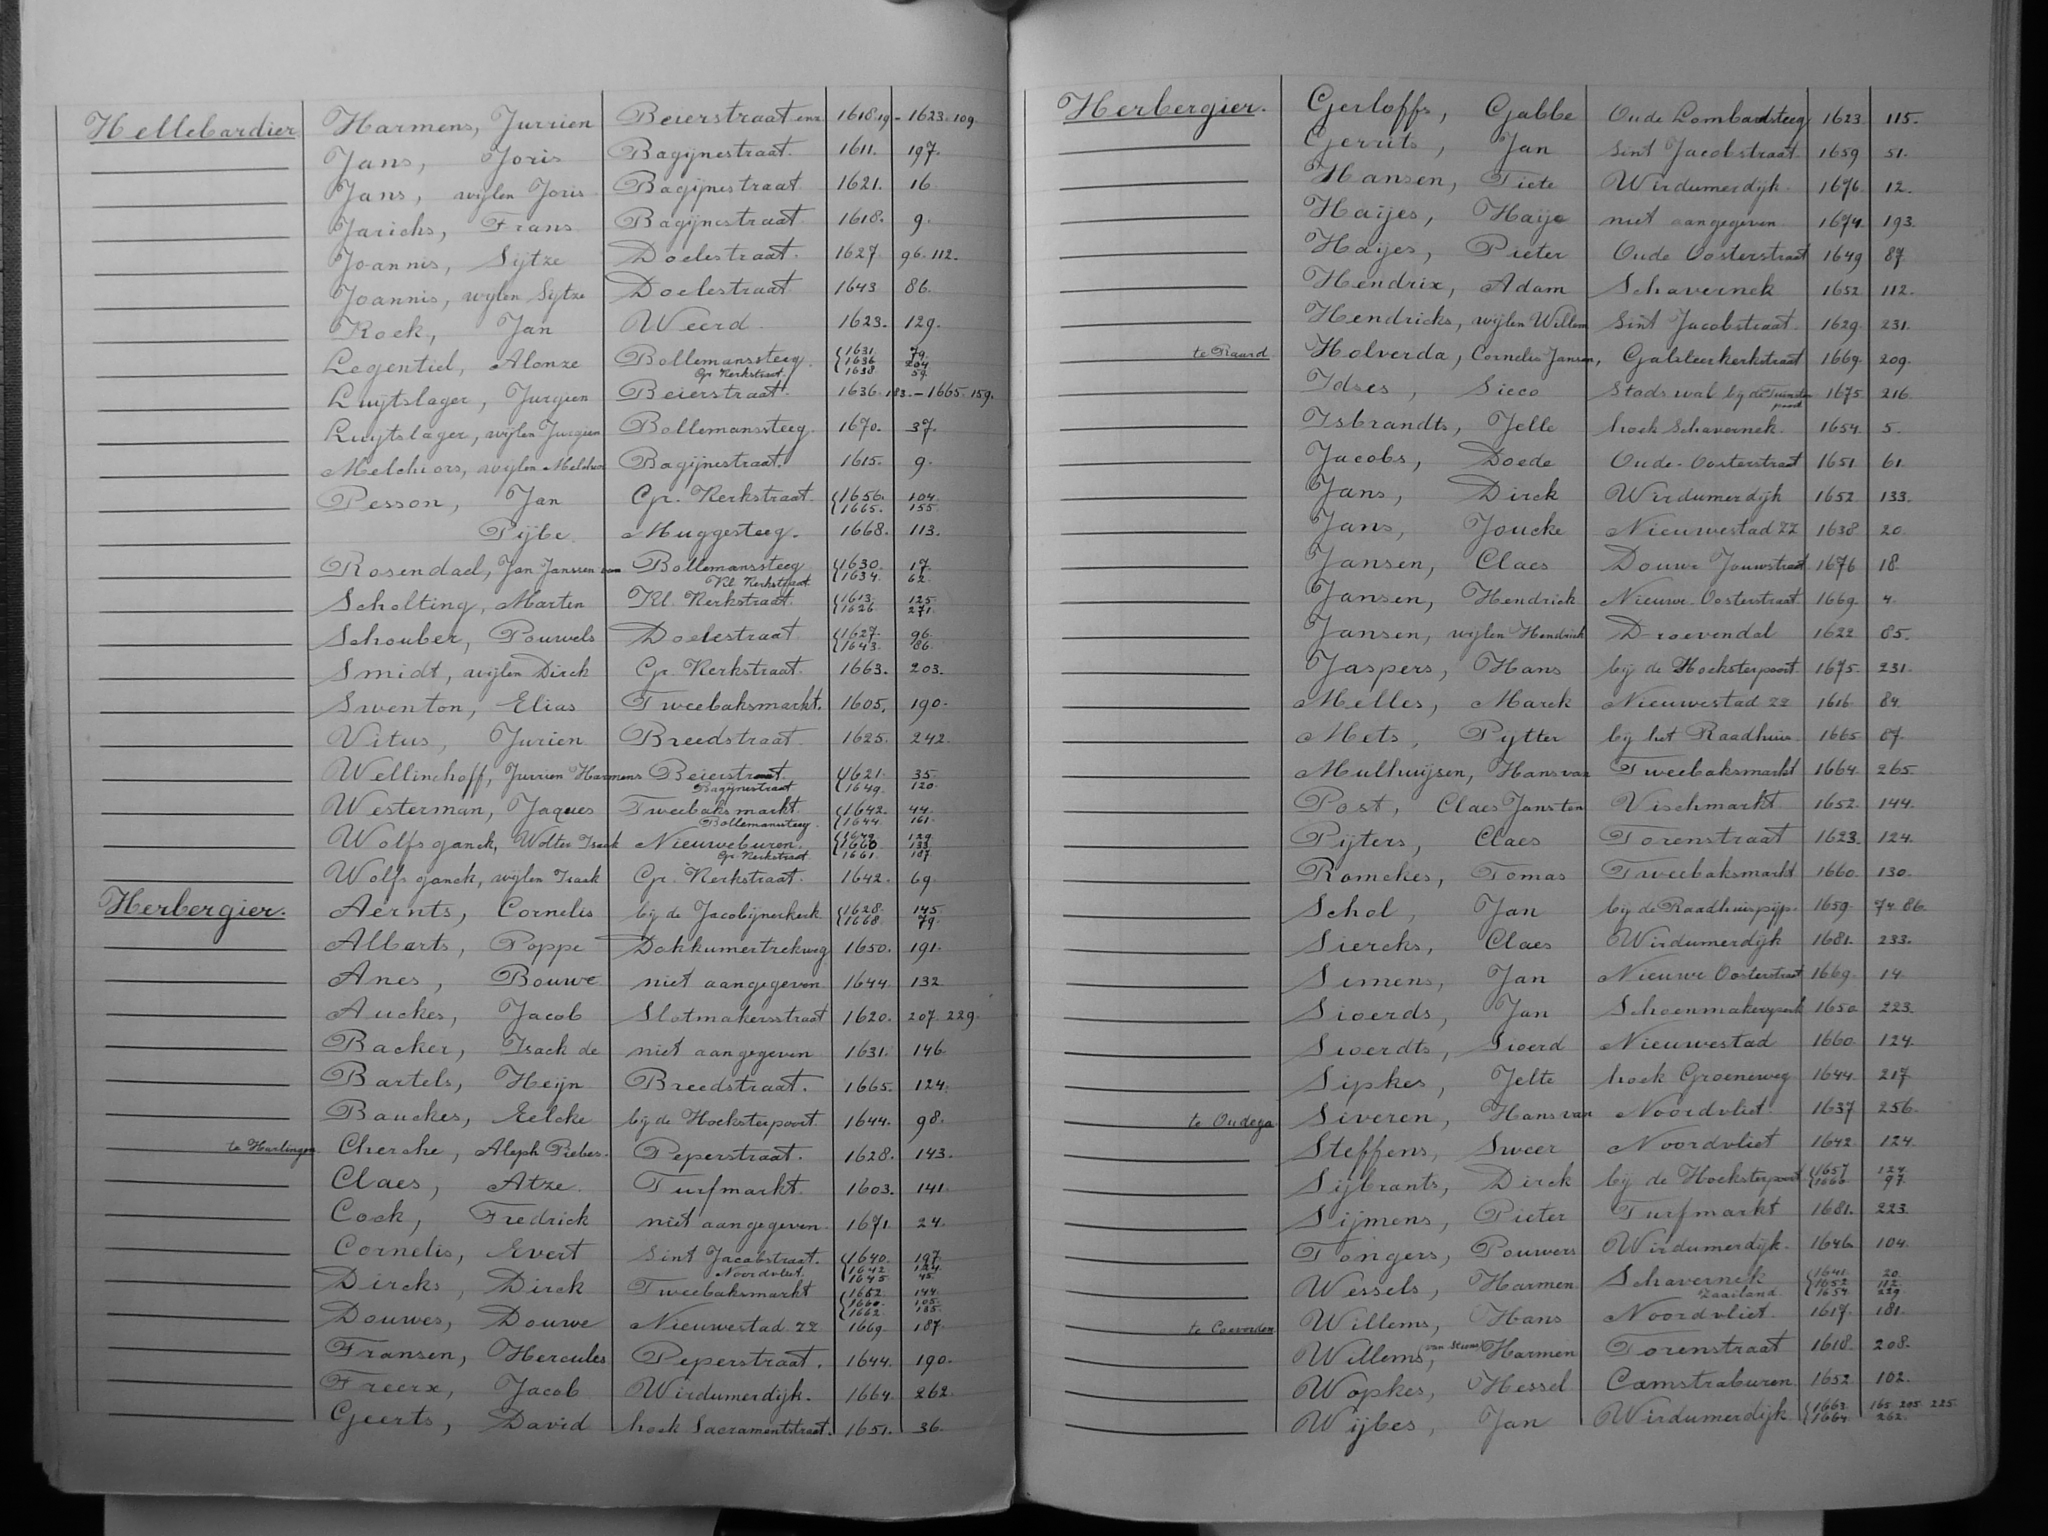 Hellebardier Harmens, Jurrien Beierstraat enz 1618.19 - 1623.109.
Jans, Joris Bagijnestraat. 1611. 197.
Jans, wijlen Joris Bagijnestraat 1621. 16
Jarichs, Frans Bagijnestraat 1618. 9.
Joannis, Sijtze Doelestraat. 1627. 96. 112.
Joannis, wijlen Sijtze Doelestraat 1643 86.
Kock, Jan Weerd. 1623. 129.
Legentiel, Alonze Bollemanssteeg. 1631. 79.
1636 204
Gr. Kerkstraat. 1638. 59.
Luijtslager, Jurgien Beierstraat. 1636.183. - 1665.159.
Luijtslager, wijlen Jurgien Bollemanssteeg. 1670. 37.
Melchiors, wijlen Melchior Bagijnestraat. 1615. 9.
Pesson, Jan Gr. Kerkstraat. 1656. 104.
1665. 155.
Pijbe Muggesteeg. 1668. 113.
Rosendael, Jan Janssen van Bollemanssteeg 1630. 17.
Kl. Kerkstraat 1634. 62.
Scholting, Marten Kl. Kerkstraat. 1613. 125.
1626. 271.
Schouber, Pouwels Doelestraat 1627. 96.
1643. 86.
Smidt, wijlen Dirck Gr. Kerkstraat. 1663. 203.
Swenton, Elias Tweebaksmarkt. 1605. 190.
Vitus, Jurien Breedstraat. 1625. 242.
Wellinchoff, Jurrien Harmens Beierstraat. 1621. 35.
Bagijnestraat 1649. 120.
Westerman, Jaques Tweebaksmarkt. 1642. 44.
Bollemanssteeg. 1644. 161.
Wolfsganck, Wolter Isack Nieuweburen. 1649. 129.
1660 133.
Gr. Kerkstraat 1661. 187.
Wolfsganck, wijlen Isack Gr. Kerkstraat. 1642. 69.
Herbergier. Aernts, Cornelis bij de Jacobijnerkerk 1628. 145.
1668. 79.
Alberts, Poppe Dokkumertrekweg 1650. 191.
Anes, Bouwe niet aangegeven 1644. 132
Auckes, Jacob Slotmakersstraat 1620. 207. 229.
Backer, Isack de niet aangegeven 1631. 146.
Bartels, Heijn Breedstraat. 1665. 124.
Bauckes, Eelcke bij de Hoeksterpoort 1644. 98.
te Harlingen Cherche, Aleph Piebes. Peperstraat. 1628. 143.
Claes, Atze Turfmarkt. 1603. 141.
Cock, Fredrick niet aangegeven. 1671. 24.
Cornelis, Evert Sint Jacobstraat. 1640. 197.
Noordvliet 1642 124.
1645 45.
Dircks, Dirck Tweebaksmarkt 1652. 144.
1660. 105.
1662. 185.
Douwes, Douwe Nieuwestad ZZ 1669. 187.
Fransen, Hercules Peperstraat. 1644. 190.
Freerx, Jacob Wirdumerdijk. 1664. 262.
Geerts, David hoek Sacramentstraat. 1651. 36.
Herbergier. Gerloffs, Gabbe Oude Lombardsteeg 1623 115.
Gerrits, Jan Sint Jacobstraat 1659 51.
Hansen, Tiete Wirdumerdijk. 1676. 12.
Haijes, Haije niet aangegeven 1674. 193.
Haijes, Pieter Oude Oosterstraat 1649 87.
Hendrix, Adam Schavernek 1652 112.
Hendricks, wijlen Willem Sint Jacobstraat. 1629. 231.
te Raard. Holverda, Cornelis Jansen, Galileerkerkstraat 1669. 209.
Idses, Sieco Stads wal bij de
1675. 216.
Isbrandts, Jelle hoek Schavernek. 1654. 5.
Jacobs, Doede Oude-Oosterstraat 1651. 61.
Jans, Dirck Wirdumerdijk 1652 133.
Jans, Joucke Nieuwestad ZZ 1638 20.
Jansen, Claes Douwe Jouwstraat 1676 18.
Jansen, Hendrick Nieuwe-Oosterstraat. 1669. 4.
Jansen, wijlen Hendrick Droevendal 1622 85.
Jaspers, Hans bij de Hoeksterpoort. 1675. 231.
Melles, Marck Nieuwestad ZZ 1616 84.
Mets, Pijtter bij het Raadhuis 1665 87.
Mulhuijsen, Hans van Tweebaksmarkt 1664. 265.
Post, Claes Jansten Vischmarkt. 1652. 144.
Pijters, Claes Torenstraat 1623. 124.
Romckes, Tomas Tweebaksmarkt 1660. 130.
Schol, Jan bij de Raadhuispijp. 1659. 74. 86.
Siercks, Claes Wirdumerdijk 1681. 233.
Simens, Jan Nieuwe Oosterstraat 1669. 14.
Sioerds, Jan Schoenmakersperk 1650 223.
Sioerdts, Sioerd Nieuwestad 1660. 124.
Sipkes, Jelte hoek Groeneweg 1644. 217.
te Oudega. Siveren, Hans van Noordvliet. 1637 256.
Steffens, Sweer Noordvliet 1642 124.
Sijbrants, Dirck bij de Hoeksterpoort 1657 124.
1666 97.
Sijmens, Pieter Turfmarkt 1681. 223.
Tongers, Pouwers Wirdumerdijk. 1646. 104.
Wessels, Harmen Schavernek 1641. 20.
1652 112.
Zaailand 1654 229.
te Coevorden Willems, Hans Noordvliet. 1617. 181.
Willems, Harmen Torenstraat 1618. 208.
Wopkes, Hessel Camstraburen 1652 102.
Wijbes, Jan Wirdumerdijk 1662. 165. 205. 225.
1664. 262.